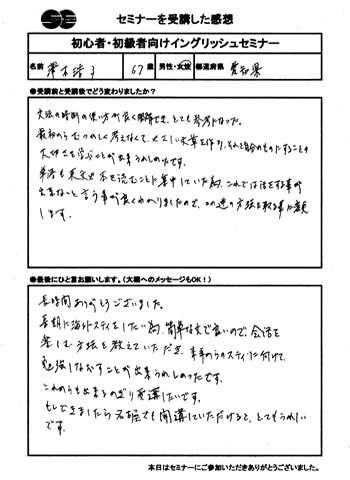 セミナーを受講した感想
初心者・初級者向けイングリッシュセミナー
名前 67 歳 男性・女性 都道府県 愛知県
●受講前と受講後でどう変わりましたか?
文法の時制の使い方が良く理解でき、とても参考になった。
最初からむつかしく考えなくて、やさしい文章を作り、それを自分のものにすることの
大切さを学ぶことが出来うれしかったです。
単語も長文や本を読むことに集中していた為、これでは話をする事が
出来ないと言う事が良くわかりましたので、この逆の方法を取る事に致
します。
●最後にひと言お願いします。(大橋へのメッセージもOK!)
長時間ありがとうございました。
長期に海外ステイをしたい為、簡単な文で良いので、会話を
楽しむ方法を教えていただき、来年のステイに向けて
勉強しなおすことが出来うれしかったです。
これからも出来るかぎり受講したいです。
もしできましたら名古屋でも開講していただけると、とてもうれしい
です。
本日はセミナーにご参加いただきありがとうございました。